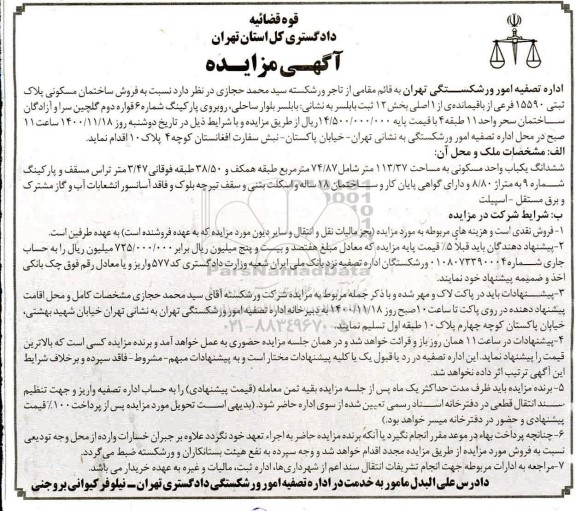 قوه قضائیه
دادگستری کل استان تهران
آگهی مزایده
اداره تصفیه امور ورشکستگی تهران به قائم مقامی از تاجر ورشکسته سید محمد حجازی در نظر دارد نسبت به فروش ساختمان مسکونی پلاک
ثبتی ۱۵۵۹۰ فرعی از باقیمانده‌ی از ۱ اصلی بخش ۱۲ ثبت بابلسر به نشانی: بابلسر بلوار ساحلی، روبروی پارکینگ شماره ۶ قواره دوم گلچین سرا و آزادگان
ساختمان سحر واحد ۱۱ طبقه ۴ با قیمت پایه ۱۴/۵۰۰/۰۰۰/۰۰۰ ریال از طریق مزایده و با شرایط ذیل در تاریخ دوشنبه روز ۱۴۰۰/۱۱/۱۸ ساعت ۱۱
صبح در محل اداره تصفیه امور ورشکستگی به نشانی تهران-خیابان پاکستان-نبش سفارت افغانستان کوچه ۴ پلاک ۱۰ اقدام نماید.
الف: مشخصات ملک و محل آن:
ششدانگ یکباب واحد مسکونی به مساحت ۱۱۳/۳۷ متر شامل ۷۴/۸۷ مترمربع طبقه همکف و ۳۸/۵۰ طبقه فوقانی ۳/۴۷ متر تراس مسقف و پارکینگ
شماره ۹ به متراژ ۸/۸۰ و دارای گواهی پایان کار و ساختمان ۱۸ ساله و اسکلت بتنی و سقف تیرچه بلوک و فاقد آسانسور انشعابات آب و گاز مشترک
و برق مستقل -اسپیلت
ب: شرایط شرکت در مزایده
۱- فروش نقدی است و هزینه های مربوطه به مورد مزایده (بجز مالیات نقل و انتقال و سایر دیون مورد مزایده که به عهده فروشنده است) به عهده طرفین است.
۲- پیشنهاد دهندگان باید قبلا ۵٪ قیمت پایه مزایده که معادل مبلغ هفتصد و بیست و پنج میلیون ریال برابر ۷۲۵/۰۰۰/۰۰۰ میلیون ریال را به حساب
جاری شماره ۰۱۰۸۰۷۳۳۹۰۰۰۴ ورشکستگان اداره تصفیه نزد بانک ملی ایران شعبه وزارت دادگستری کد ۵۷۷ واریز و یا معادل رقم فوق چک بانکی
اخذ و ضمیمه پیشنهاد خود نمایند.
۳- پیشنهادات باید در پاکت لاک و مهر شده و با ذکر جمله مربوط به مزایده شرکت ورشکسته آقای سید محمد حجازی مشخصات کامل و محل اقامت
پیشنهاد دهنده در روی پاکت تا ساعت ۱۰ صبح روز ۱۴۰۰/۱۱/۱۸ به دبیرخانه اداره تصفیه امور ورشکستگی تهران به نشانی تهران خیابان شهید بهشتی،
خیابان پاکستان کوچه چهارم پلاک ۱۰ طبقه اول تسلیم نمایند.
۴- پیشنهادات در ساعت ۱۱ همان روز باز و قرائت خواهد شد و در همان جلسه مزایده حضوری به عمل خواهد آمد و برنده مزایده کسی است که بالاترین
قیمت را پیشنهاد نماید. این اداره تصفیه در رد یا قبول یک یا کلیه پیشنهادات مختار است و به پیشنهادات مبهم-مشروط-فاقد سپرده و برخلاف شرایط
این آگهی ترتیب اثر داده نخواهد شد.
۵- برنده مزایده باید ظرف مدت حداکثر یک ماه پس از جلسه مزایده بقیه ثمن معامله (قیمت پیشنهادی) را به حساب اداره تصفیه واریز و جهت تنظیم
سند انتقال قطعی در دفترخانه اسناد رسمی تعیین شده از سوی اداره حاضر شود. (بدیهی است تحویل مورد مزایده پس از پرداخت ۱۰۰٪ قیمت
پیشنهادی و حضور در دفترخانه میسر خواهد بود.)
۶- چنانچه پرداخت بهاء در موعد مقرر انجام نگیرد یا آنکه برنده مزایده حاضر به اجراء تعهد خود نگردد علاوه بر جبران خسارات وارده از محل وجه تودیعی
نسبت به فروش مورد مزایده از طریق مزایده مجدد اقدام خواهد شد و وجه سپرده به نفع هیئت بستانکاران و ورشکسته ضبط می‌گردد.
۷- مراجعه به ادارات مربوطه جهت انجام تشریفات انتقال سند اعم از شهرداری‌ها، اداره ثبت، مالیات و غیره به عهده خریدار می باشد.
دادرس علی البدل مامور به خدمت در اداره تصفیه امور ورشکستگی دادگستری تهران – نیلوفر کیوانی بروجنی
ParsNamadData
۰۲۱-۸۸۳۴۹۶۷۰